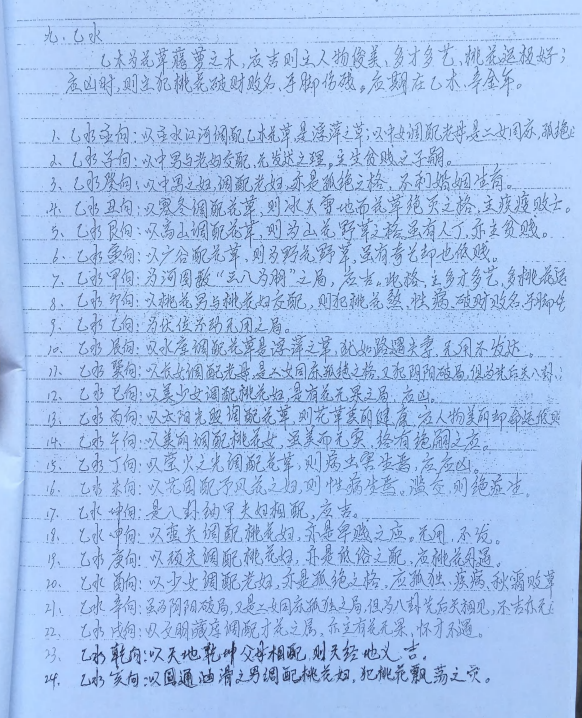 九、乙水
乙木为花草藤萝之木，应吉则主人物俊美、多才多艺，桃花运极好；
应凶时，则主犯桃花破财败名、手脚伤残。应期在乙木、辛金年。
1、乙水壬向：以壬水江河调配乙木花草是浮萍之草；以中女调配老母是二女同床，孤绝
2、乙水子向：以中男与老妇交配，无发达之理。主生贫贱之子嗣。
3、乙水癸向：以中男之妇，调配老妇，亦是孤绝之格，不利婚姻生育。
4、乙水丑向：以寒冬调配花草，则冰天雪地而花草绝灭之格，主疾疫败亡。
5、乙水艮向：以高山调配花草，则为山花野草之格虽有人丁，亦主贫贱。
6、乙水寅向：以广谷配花草，则为野花野草，虽有奇艺却也低贱。
7、乙水甲向：为河图数"三八为朋"之局，应吉。此格，主多才多艺，多桃花运
8、乙水卯向：以桃花男与桃花妇交配，则犯桃花煞、性病、破财败名、手脚伤
9、乙水乙向：为伏位不动无用之局。
10、乙水辰向：以水库调配花草是浮萍之草，犹如路遇夫妻，无用不发达。
11、乙水巽向：以长女调配老母，是二女同床孤绝之格，又犯阴阳破局，但为先后天八卦；
12、乙水巳向：以美少女调配桃花妇，是有花无果之局，应凶。
13、乙水丙向：以太阳光照调配花草，则花草美丽健康，应人物美丽却命运低贱
14、乙水午向：以美丽调配桃花女，虽美而无实，恰有绝嗣之应。
15、乙水丁向：以萤火之光调配花草，则病虫害生焉，应应凶。
16、乙水未向：以花园配予风花之妇，则性病生焉。滥交，则绝症生。
17、乙水坤向：是八卦纳甲夫妇相配，应吉。
18、乙水申向：以蛮夫调配桃花妇，亦是卑贱之应。无用、不发。
19、乙水庚向：以硕夫调配桃花妇，亦是低俗之配，应桃花
20、乙水酉向：以少女调配老妇，亦是孤绝之格，应孤独、疾病、秋霜败草
21、乙水辛向：虽为阴阳破局，又是二女同床孤独之局，但为八卦先后天相见，不吉亦无
22、乙水戌向：以文明藏库调配才花之局，亦主有花无果，怀才不遇。
23、乙水乾向：以天地乾坤父母相配，则天经地义吉。
24、乙水亥向：以圆通油滑之男调配桃花妇，犯桃花飘荡之灾。